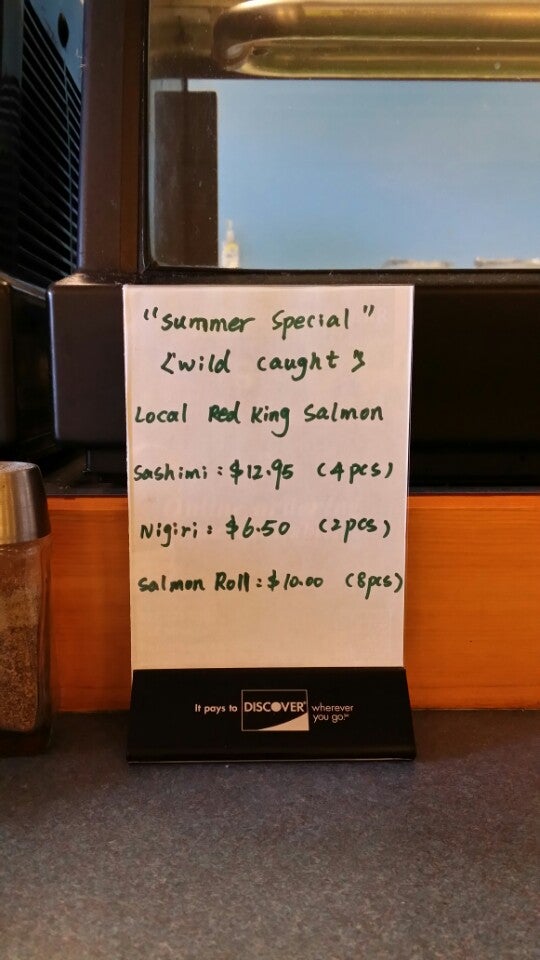 "Summer Special"
<wild caught>
Local Red King Salmon
Sashimi: $12.95 (4pcs)
Nigiri: $6.50 (2pcs)
Salmon Roll: $10.00 (8pcs)
It pays to DISCOVER wherever
you go.